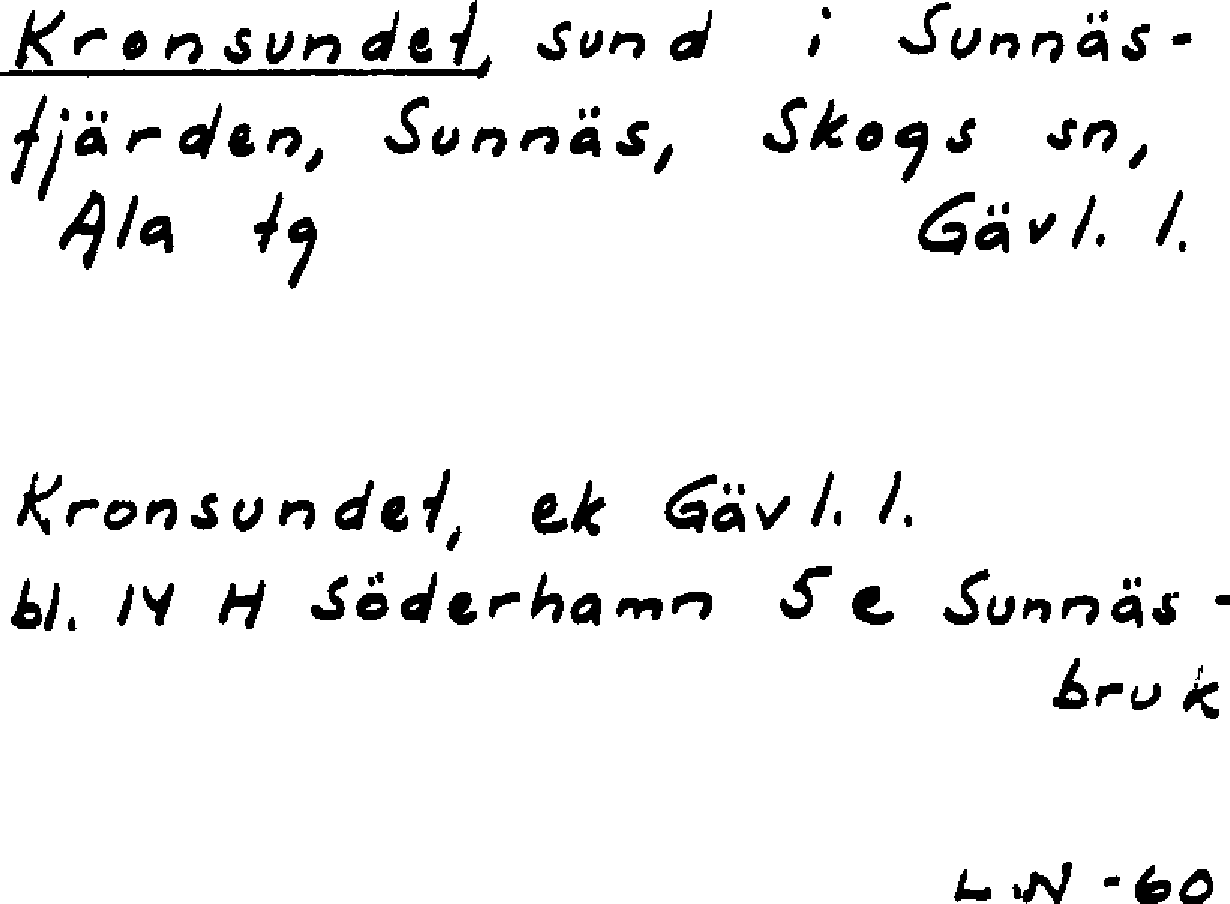 Kronsundet, sund i Sunnäs-
fjärden, Sunnäs, Skogs sn,
Ala tg Gävl. l.
Kronsundet, ek Gävl. l.
bl. 14 H Söderhamn 5 e Sunnäs-
bruk
L.N -60